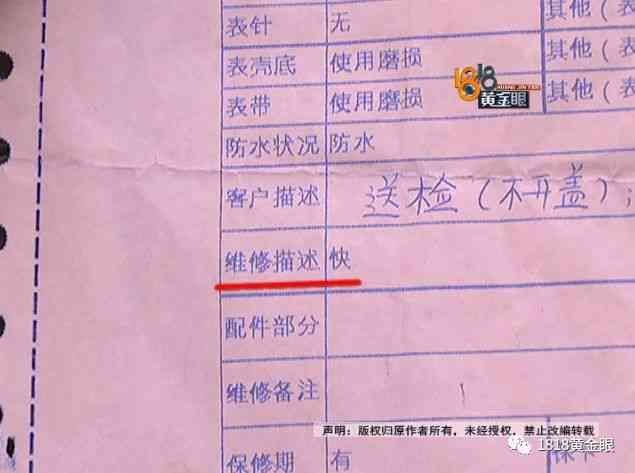 表针 无
表壳底 使用磨损 其他（表
表带 使用磨损 其他（表
防水状况 防水
客户描述 送检（不开盖）；
维修描述 快
配件部分
维修备注
保修期 有
其他（表
1818
黄金眼
声明：版权归原作者所有，未经授权，禁止改编转载
1818黄金眼